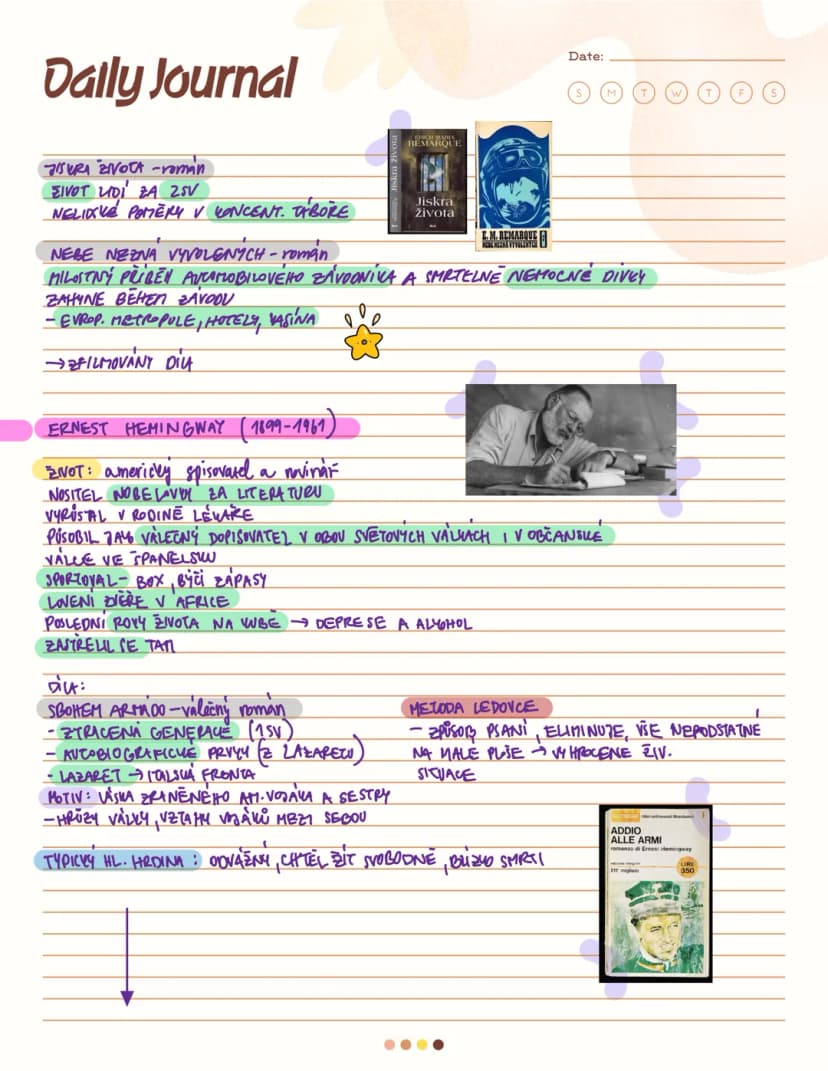 Daily Journal
Date:
S M T W T F S
JISKRA ŽIVOTA - román
ŽIVOT LIDÍ ZA 2SV
NELIDSKÉ POMĚRY V KONCENT. TÁBOŘE
ERICH MARIA
REMARQUE
Jiskra
života
Jiskra života
E. M. REMARQUE
NEBE NEZNÁ VYVOLENÝCH
NEBE NEZNÁ VYVOLENÝCH - román
MILOSTNÝ PŘÍBĚH AUTOMOBILOVÉHO ZÁVODNÍKA A SMRTELNĚ NEMOCNÉ DÍVKY
ZAHYNE BĚHEM ZÁVODU
- EVROP. METROPOLE, HOTELY, KASINA
→ ZFILMOVÁNY DÍLA
ERNEST HEMINGWAY (1899-1961)
ŽIVOT: americký spisovatel a novinář
NOSITEL NOBELOVKY ZA LITERATURU
VYRŮSTAL V RODINĚ LÉKAŘE
PŮSOBIL JAKO VÁLEČNÝ DOPISOVATEL V OBOU SVĚTOVÝCH VÁLKÁCH I V OBČANSKÉ
VÁLCE VE ŠPANĚLSKU
SPORTOVAL - BOX, BÝČÍ ZÁPASY
LOVENÍ ZVĚŘE V AFRICE
POSLEDNÍ ROKY ŽIVOTA NA KUBĚ → DEPRESE A ALKOHOL
ZASTŘELIL SE TAM
DÍLA:
SBOHEM ARMÁDO - válečný román
- ZTRACENÁ GENERACE (1SV)
- AUTOBIOGRAFICKÉ PRVKY (Z LAZARETU)
- LAZARET → ITALSKÁ FRONTA
MOTIV: LÁSKA ZRANĚNÉHO AM. VOJÁKA A SESTRY
- HRŮZY VÁLKY, VZTAHY VOJÁKŮ MEZI SEBOU
TYPICKÝ HL. HRDINA: ODVÁŽNÝ, CHTĚL ŽÍT SVOBODNĚ, BLÍZKO SMRTI
METODA LEDOVCE
- ZPŮSOB PSANÍ, ELIMINUJE, VŠE NEPODSTATNÉ
NA MALÉ PLOŠE → VYHROCENÉ ŽIV.
SITUACE
ADDIO
ALLE ARMI
romanzo di Ernest Hemingway
LIRE
350